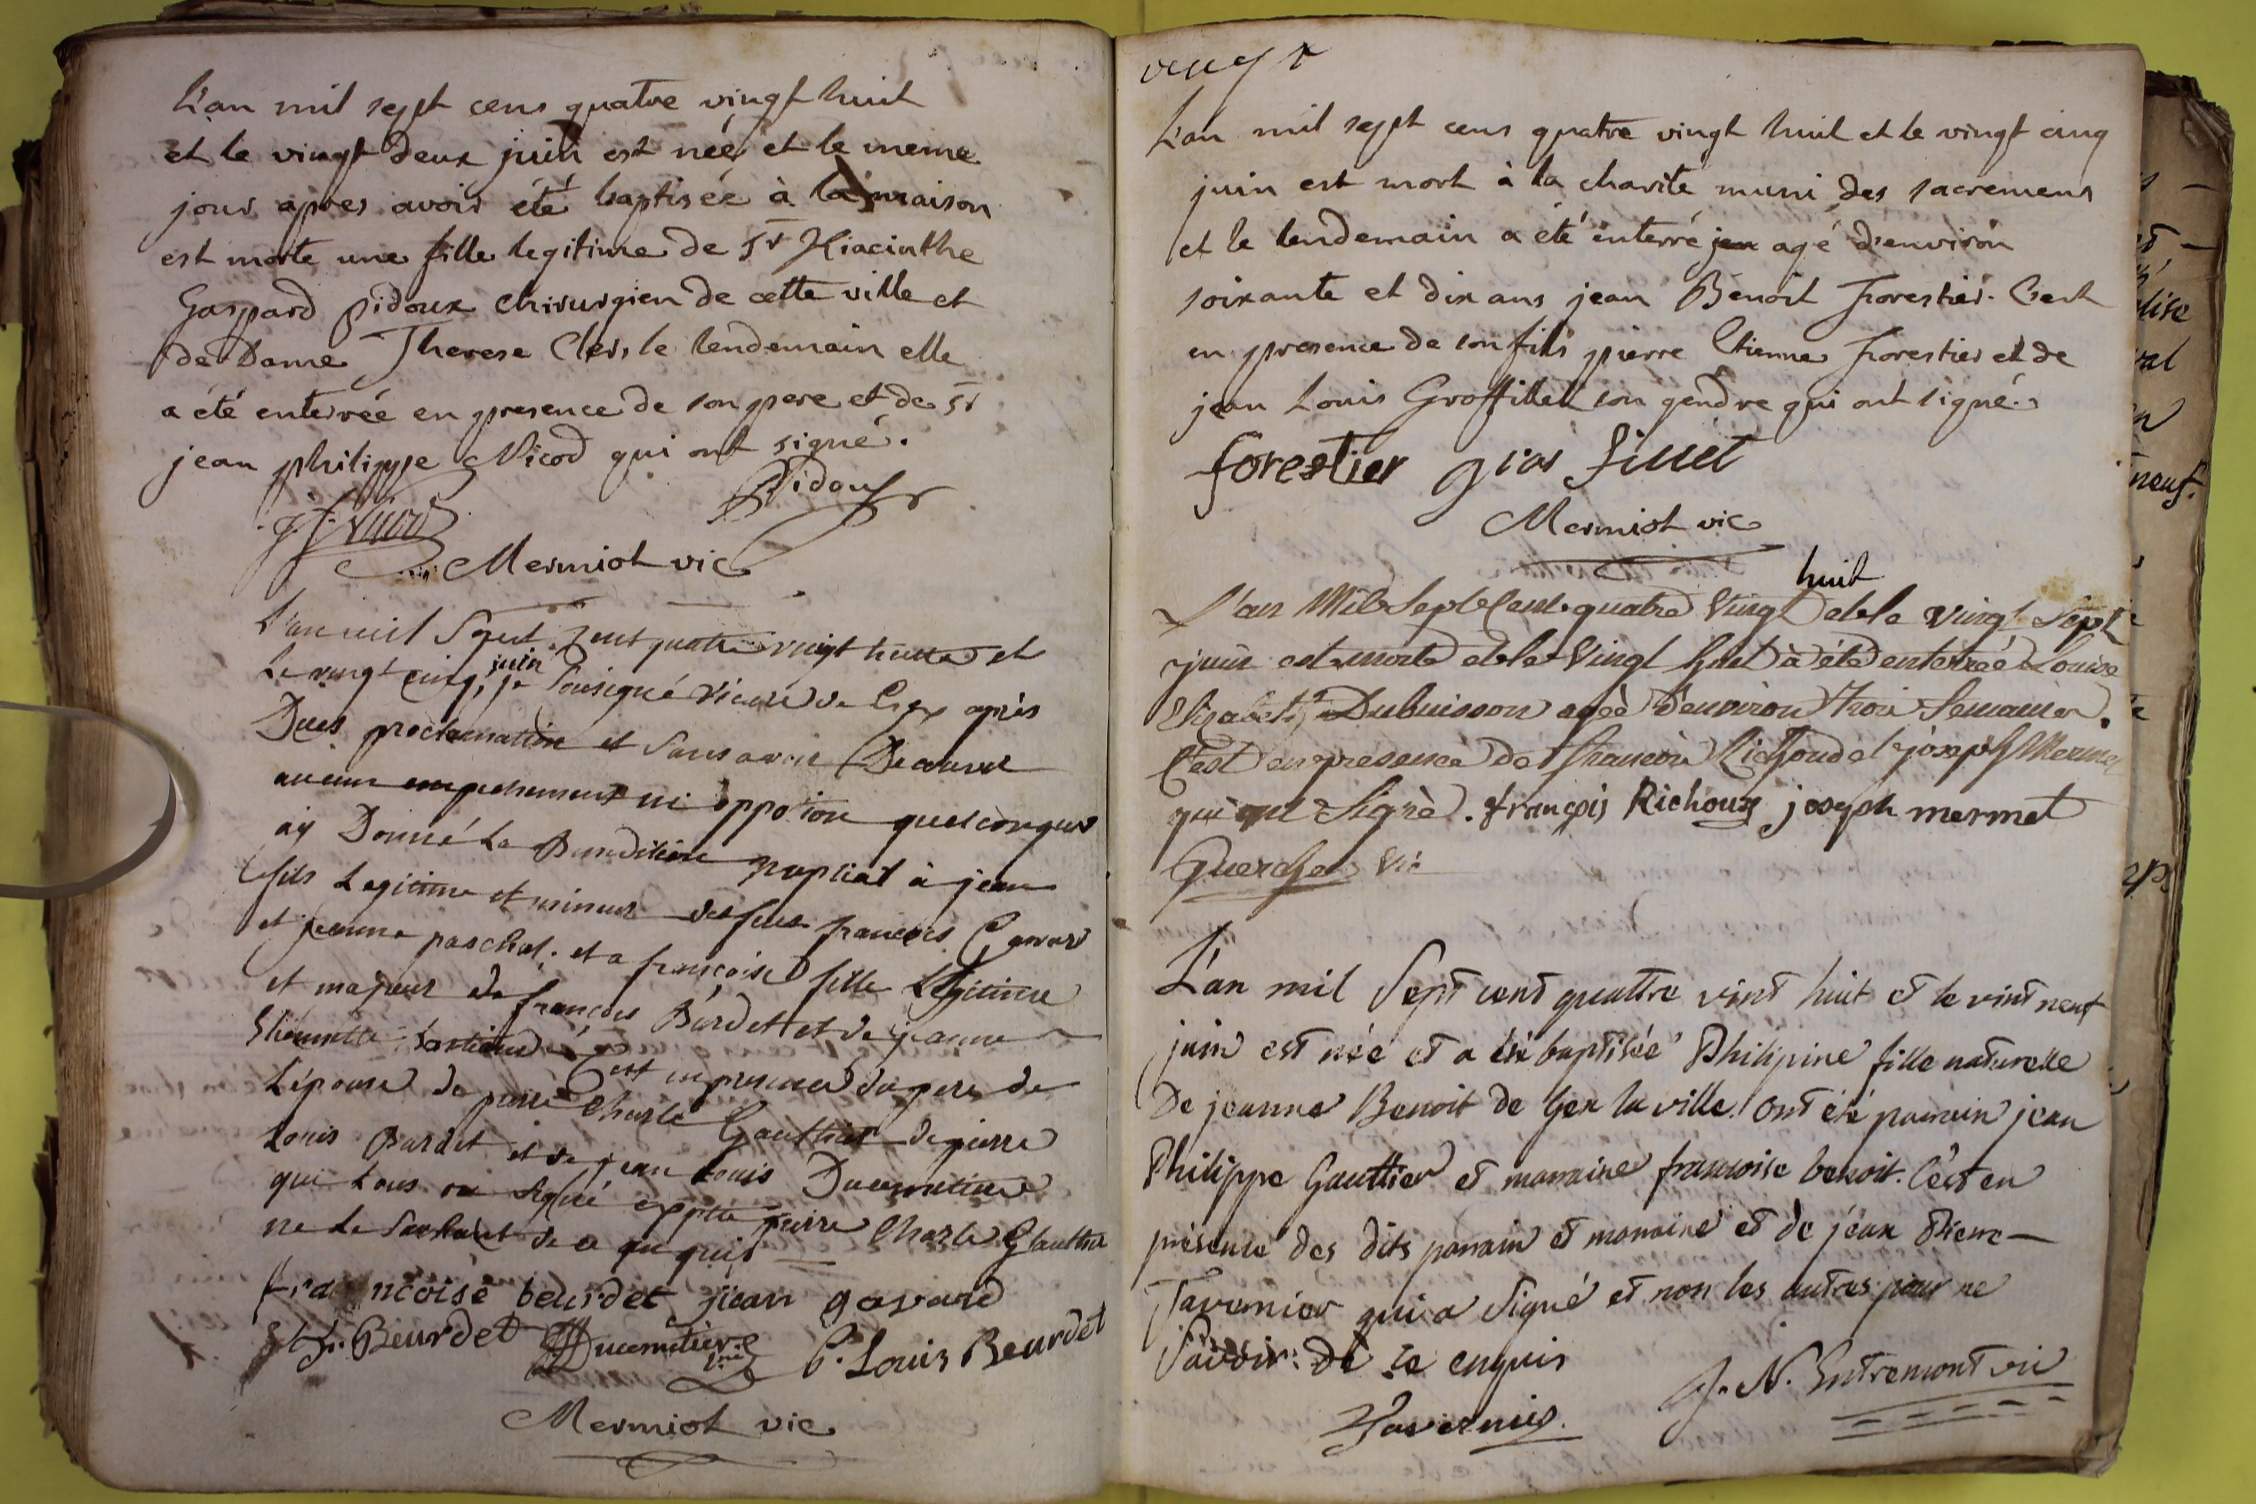 L'an mil sept cens quatre vingt huit
et le vingt deux juin est née et le meme
jour apres avoir été baptisée à la maison
est morte une fille legitime de Sr Hiacinthe
Gaspard Pidoux chirurgien de cette ville et
de Dame Therese Clers, le lendemain elle
a été enterrée en presence de son pere et de Sr
jean philippe Nicod qui ont signé.
Pidoux
Mermiot vic
L'an mil Sept Cent quatre vingt huitte et
Le vingt cinq, juin je Sousigné vicaire de Gex après
Dues proclamation et Sans avoir Decouvert
aucun empechement ni oppo'ion quelconque
ay Donné La Benediction nuptial à jean
fils Legitime et mineur de feu francois Gavard
et jeanne paschal. et a françoise fille Legitime
et majeur de françois Burdet et de jeanne
C'est en presence du pere de
Lépouse de pierre Charle Gauthier de pierre
Louis Burdet et de jean Louis Ducimetiere
qui tous on signé exptté pierre Charle Gauthie
ne Le Sachant de ce enquis
francoise beurdet jean gavard
f. Beurdet Ducimetière P. Louis Beurdet
Mermiot vic
vingt
L'an mil sept cens quatre vingt huit et le vingt cinq
juin est mort à la charité muni des sacremens
et le lendemain a été enterré jea agé d'environ
soixante et dix ans jean Benoit Forestier. C'est
en presence de son fils pierre Etienne Forestier et de
jean Louis Grosfillet son gendre qui ont signé.
forestier gros fillet
Mermiot vic
L'an Mil Sept Cent quatre Vingt huit et le Vingt Sept
juin est morte et le Vingt huit à été enterreé Louise
Elizabeth Dubuisson ageè d'environ trois Semaines.
C'est en presence de francois Richoud et joseph Mermet
qui ont Signè. françois Richoux joseph mermet
L'an mil Sept cent quattre vint huit et le vint neuf
juin est née et a été baptisée Philipine fille naturelle
De jeanne Benoit de Gex la ville. ont été parrain jean
Philippe Gauttier et marraine francoise benoit. C'est en
présence des dits parrain et marraine et de jean Pierre
Tavernier qui a Signé et non les autres pour ne
Savoir de ce enquis
J. N. Entremont vic
Tavernier.